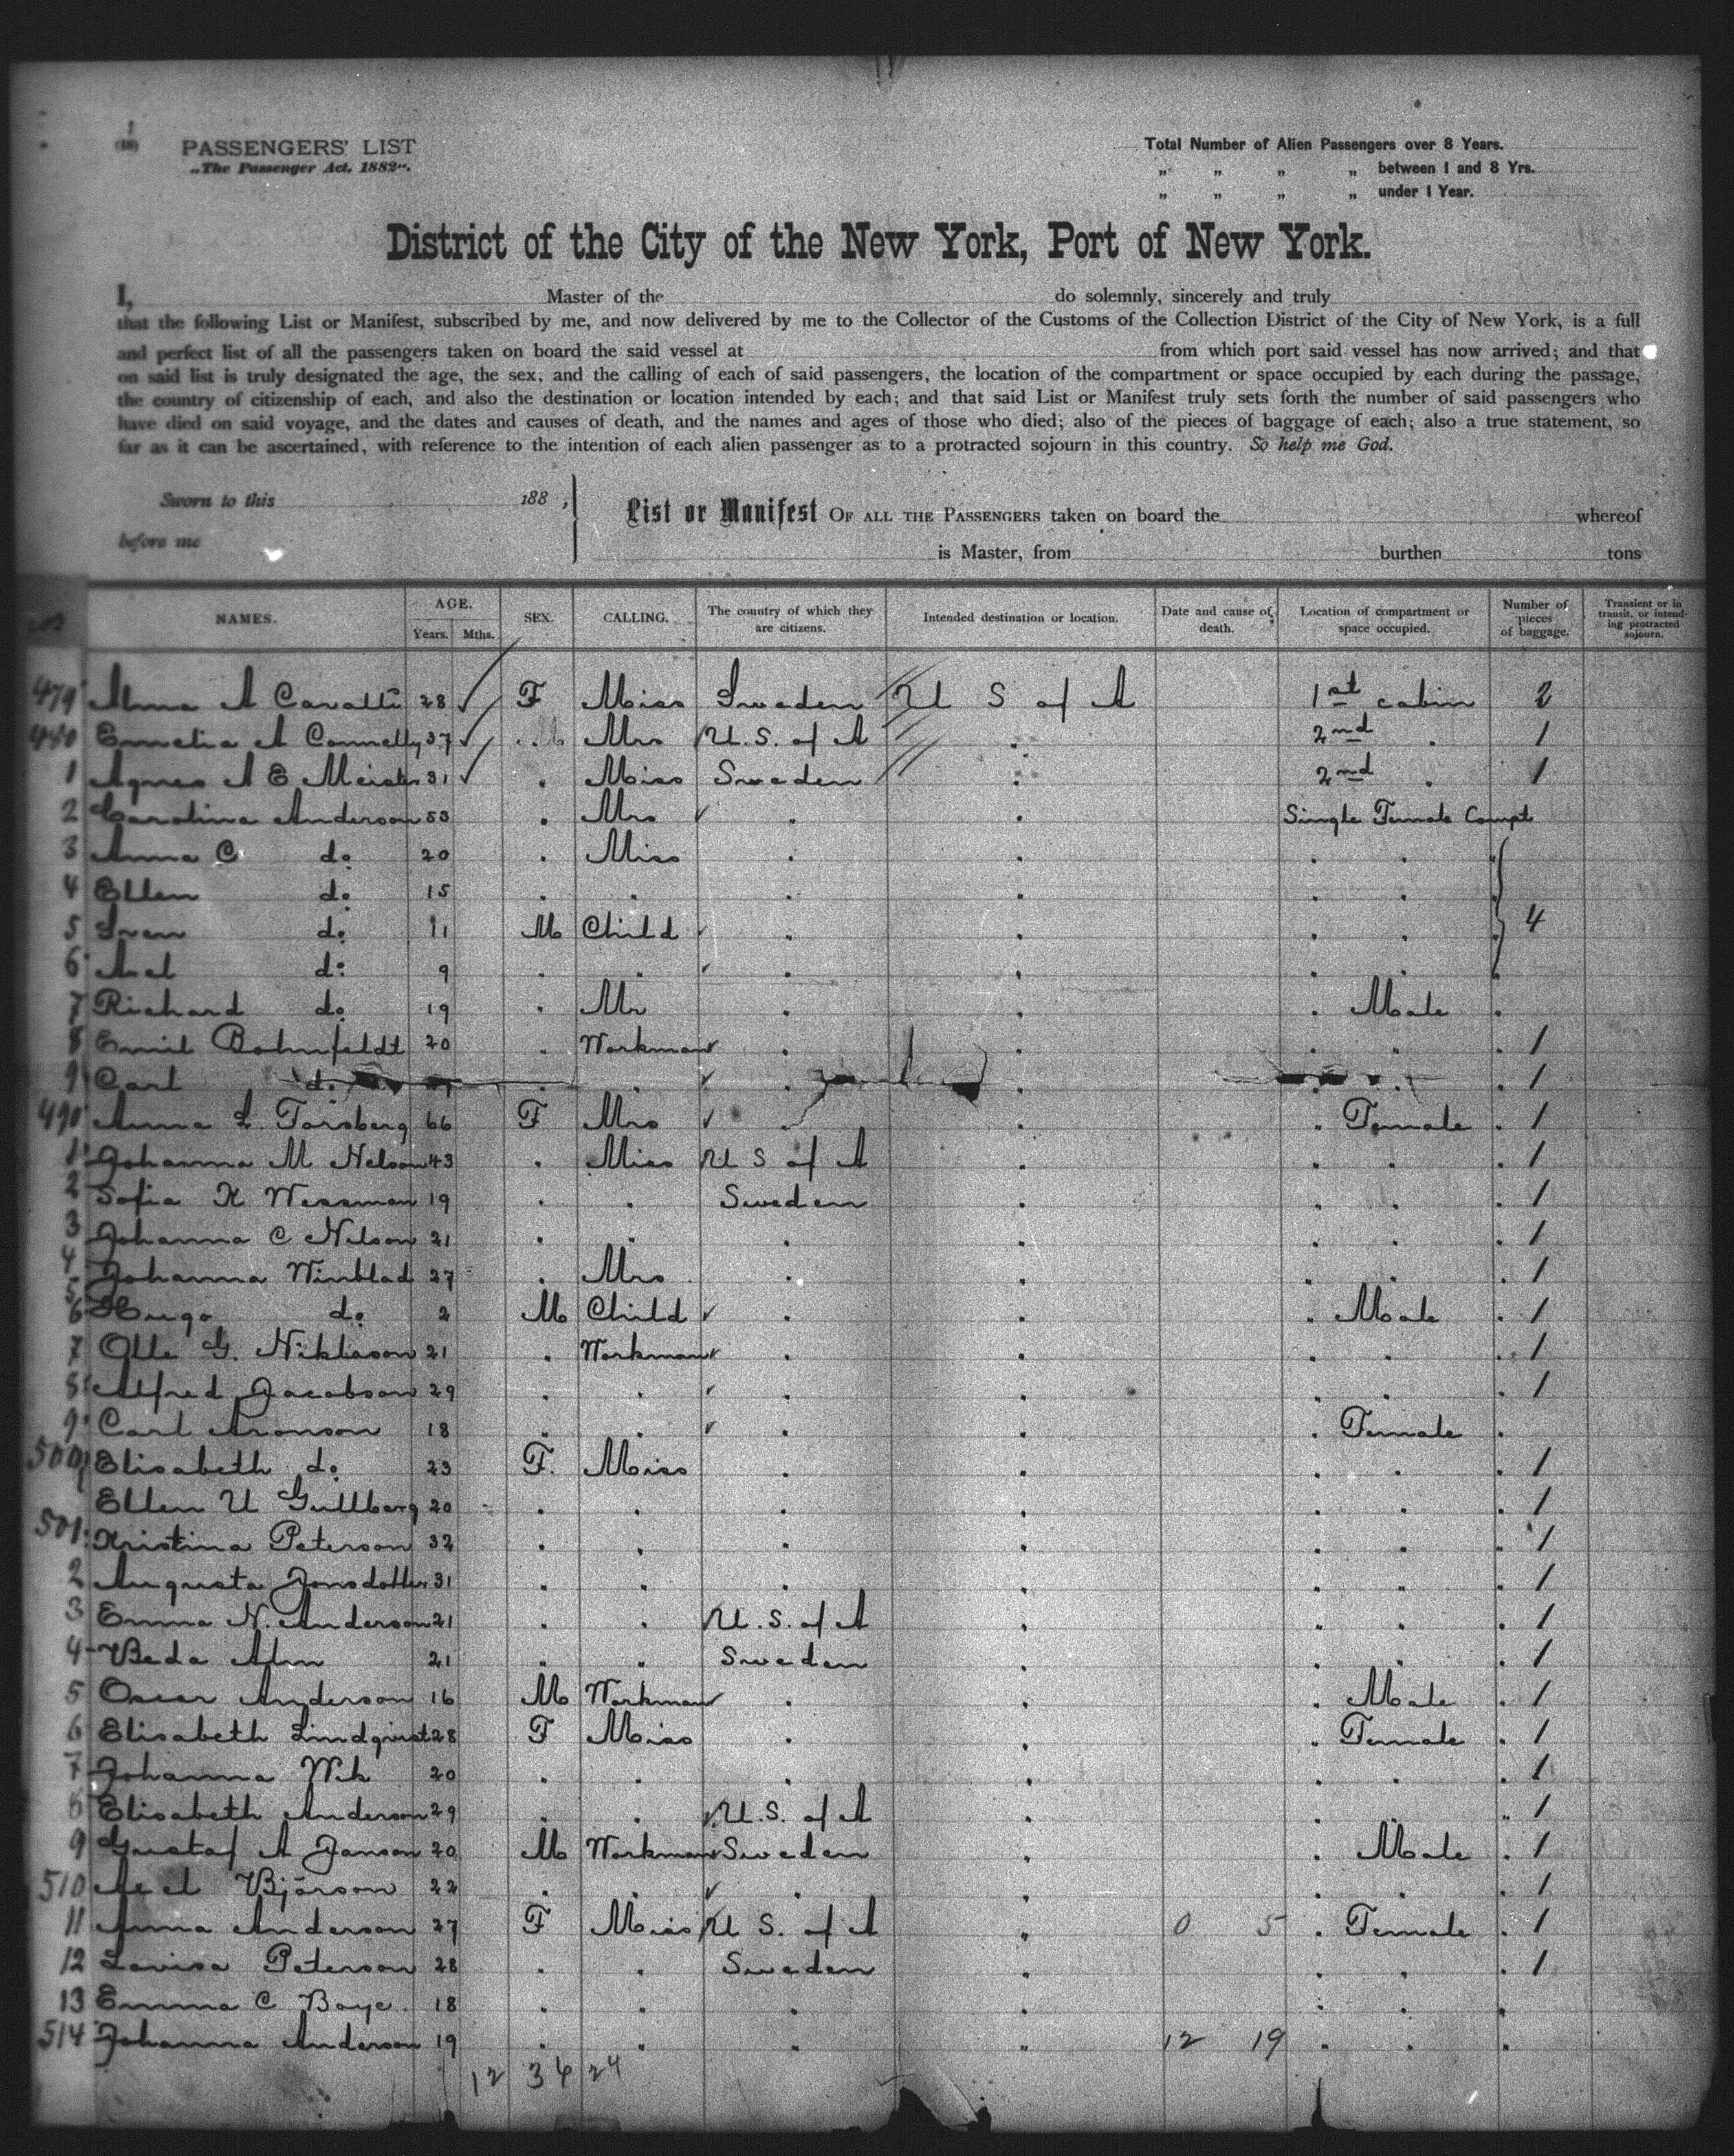 (18) PASSENGERS' LIST
„The Passenger Act. 1882".
Total Number of Alien Passengers over 8 Years.
„ „ „ „ between 1 and 8 Yrs.
„ „ „ „ under 1 Year.
District of the City of the New York, Port of New York.
I, Master of the do solemnly, sincerely and truly
that the following List or Manifest, subscribed by me, and now delivered by me to the Collector of the Customs of the Collection District of the City of New York, is a full
and perfect list of all the passengers taken on board the said vessel at from which port said vessel has now arrived; and that
on said list is truly designated the age, the sex, and the calling of each of said passengers, the location of the compartment or space occupied by each during the passage,
the country of citizenship of each, and also the destination or location intended by each; and that said List or Manifest truly sets forth the number of said passengers who
have died on said voyage, and the dates and causes of death, and the names and ages of those who died; also of the pieces of baggage of each; also a true statement, so
far as it can be ascertained, with reference to the intention of each alien passenger as to a protracted sojourn in this country. So help me God.
Sworn to this 188 ,
before me
List or Manifest OF ALL THE PASSENGERS taken on board the whereof
is Master, from burthen tons
NAMES. AGE. Years. Mths. SEX. CALLING. The country of which they are citizens. Intended destination or location. Date and cause of death. Location of compartment or space occupied. Number of pieces of baggage. Transient or in transit, or intending protracted sojourn.
479 Alma A Cavalli 28 F Miss Sweden U S of A 1st cabin 2
480 Emelia A Connelly 37 Mrs U.S. of A 2nd " 1
1 Agnes A E Meister 31 " Miss Sweden " 2nd " 1
2 Carolina Anderson 53 " Mrs " " Single Female Compt
3 Anna C do 20 " Miss " " " "
4 Ellen do 15 " " " " " "
5 Sven do 11 M Child " " " " 4
6 Axel do 9 " " " " " "
7 Richard do 19 " Mr " " " Male "
8 Emil Bohnfeldt 20 " Workman " " " " " 1
9 Carl do " " " " " " " 1
490 Anna L. Forsberg 66 F Mrs " " " Female " 1
1 Johanna M Nelson 43 " Miss U S of A " " " " 1
2 Sofia K Wessman 19 " " Sweden " " " " 1
3 Johanna C Nilson 21 " " " " " " " 1
4 Johanna Winblad 27 " Mrs " " " " " 1
5 6 Hugo do 2 M Child " " " Male " 1
7 Olle G. Niklason 21 " Workman " " " " " 1
8 Alfred Jacobson 29 " " " " " " " 1
9 Carl Aronson 18 " " " " " Female "
500 Elisabeth do 23 F. Miss " " " " " 1
Ellen U Gullberg 20 " " " " " " " 1
501 Kristina Peterson 32 " " " " " " " 1
2 Augusta Jonsdotter 31 " " " " " " " 1
3 Emma N. Anderson 21 " " U.S. of A " " " " 1
4 Beda Alm 21 " " Sweden " " " " 1
5 Oscar Anderson 16 M Workman " " " Male " 1
6 Elisabeth Lindqvist 28 F Miss " " " Female " 1
7 Johanna Wik 20 " " " " " " " 1
8 Elisabeth Anderson 29 " " U.S. of A " " " " 1
9 Gustaf A Janson 20 M Workman Sweden " " Male " 1
510 Axel Bjorson 22 " " " " " " " 1
11 Anna Anderson 27 F Miss U S. of A " 0 5 " Female " 1
12 Lovisa Peterson 28 " " Sweden " " " " 1
13 Emma C Boye. 18 " " " " " " "
514 Johanna Anderson 19 " " " " 12 19 " " "
12 36 24